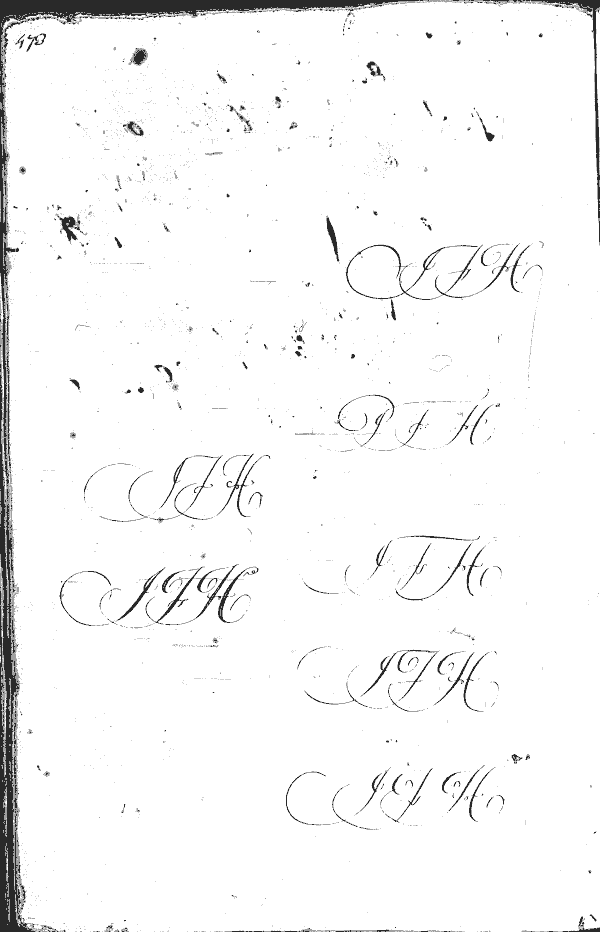 473
IFH
IFH
IFH
IFH
IFH
IFH
IFH